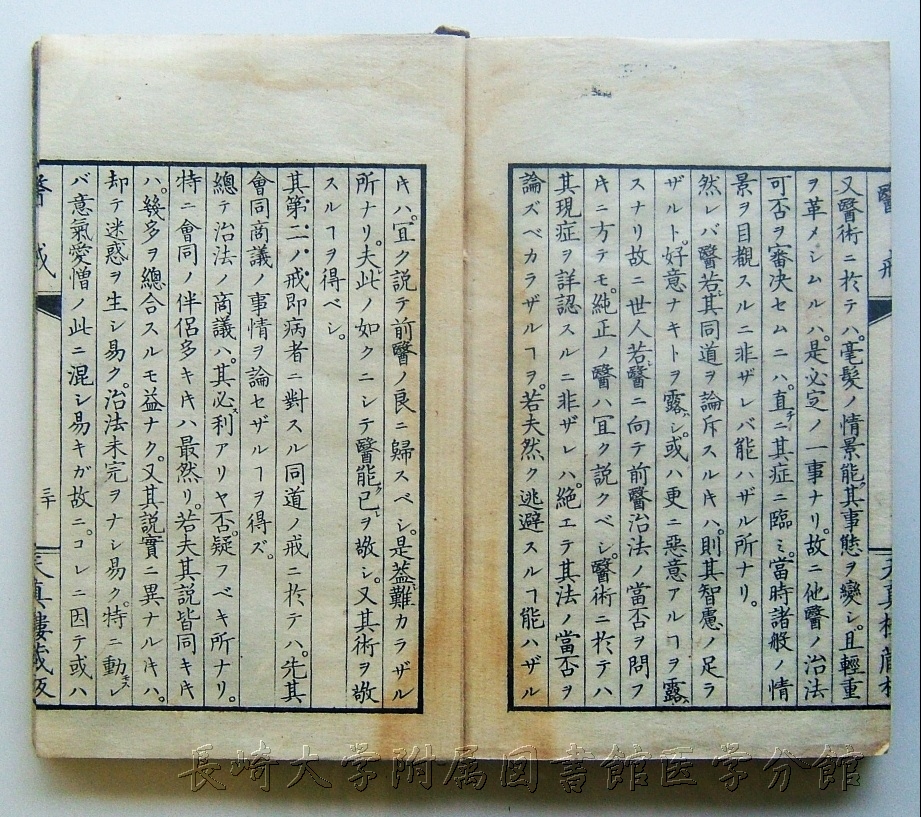 醫戒
天真樓蔵板
又醫術ニ於テハ。毫髪ノ情景能其事態ヲ變シ。且輕重
ヲ革メシムルハ。是必定ノ一事ナリ。故ニ他醫ノ治法
可否ヲ審决セムニハ。直チニ其症ニ臨ミ。當時諸般ノ情
景ヲ目觀スルニ非ザレバ能ハザル所ナリ。
然レバ醫若其同道ヲ論斥スルキハ。則其智慮ノ足ラ
ザルト。好意ナキトヲ露シ。或ハ更ニ惡意アルヿヲ露
スナリ故ニ世人若醫ニ向テ前醫治法ノ當否ヲ問フ
キニ方テモ。純正ノ醫ハ冝ク説クベシ。醫術ニ於テハ
其現症ヲ詳認スルニ非ザレハ。絶エテ其法ノ當否ヲ
論ズベカラザルヿヲ。若夫然ク逃避スルヿ能ハザル
キハ。冝ク説テ前醫ノ良ニ歸スベシ。是蓋難カラザル
所ナリ。夫此ノ如クニシテ醫能已ヲ敬シ。又其術ヲ敬
スルヿヲ得ベシ。
其第二ノ戒即病者ニ對スル同道ノ戒ニ於テハ。先其
會同商議ノ事情ヲ論セザルヿヲ得ズ。
總テ治法ノ商議ハ。其必利アリヤ否。疑フベキ所ナリ。
特ニ會同ノ伴侶多キキハ最然リ。若夫其説皆同キキ
ハ。幾多ヲ總合スルモ益ナク。又其説實ニ異ナルキハ。
却テ迷惑ヲ生シ易ク。治法未完ヲナシ易ク。特ニ動モスレ
バ意氣愛憎ノ此ニ混シ易キガ故ニ。コレニ因テ或ハ
醫戒
三十
天真樓蔵板
長崎大学附属図書館医学分館